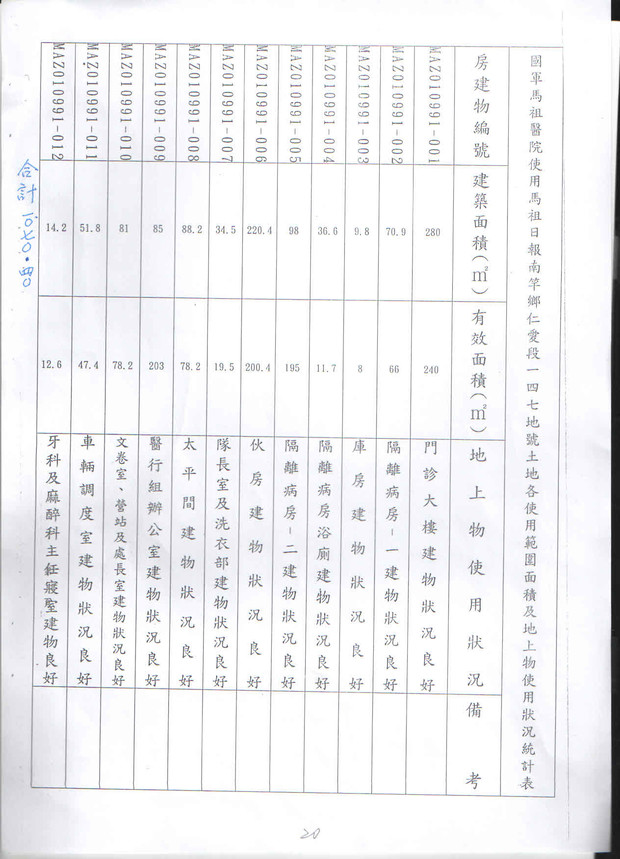 國軍馬祖醫院使用馬祖日報南竿鄉仁愛段一四七地號土地各使用範圍面積及地上物使用狀況統計表
房建物編號 建築面積(㎡) 有效面積(㎡) 地上物使用狀況 備考
MAZ010991-001 280 240 門診大樓建物狀況良好
MAZ010991-002 70.9 66 隔離病房-一建物狀況良好
MAZ010991-003 9.8 8 庫房建物狀況良好
MAZ010991-004 36.6 11.7 隔離病房浴廁建物狀況良好
MAZ010991-005 98 195 隔離病房-二建物狀況良好
MAZ010991-006 220.4 200.4 伙房建物狀況良好
MAZ010991-007 34.5 19.5 隊長室及洗衣部建物狀況良好
MAZ010991-008 88.2 78.2 太平間建物狀況良好
MAZ010991-009 85 203 醫行組辦公室建物狀況良好
MAZ010991-010 81 78.2 文卷室、營站及處長室建物狀況良好
MAZ010991-011 51.8 47.4 車輛調度室建物狀況良好
MAZ010991-012 14.2 12.6 牙科及麻醉科主任寢室建物良好
合計 一〇七〇.四〇
20